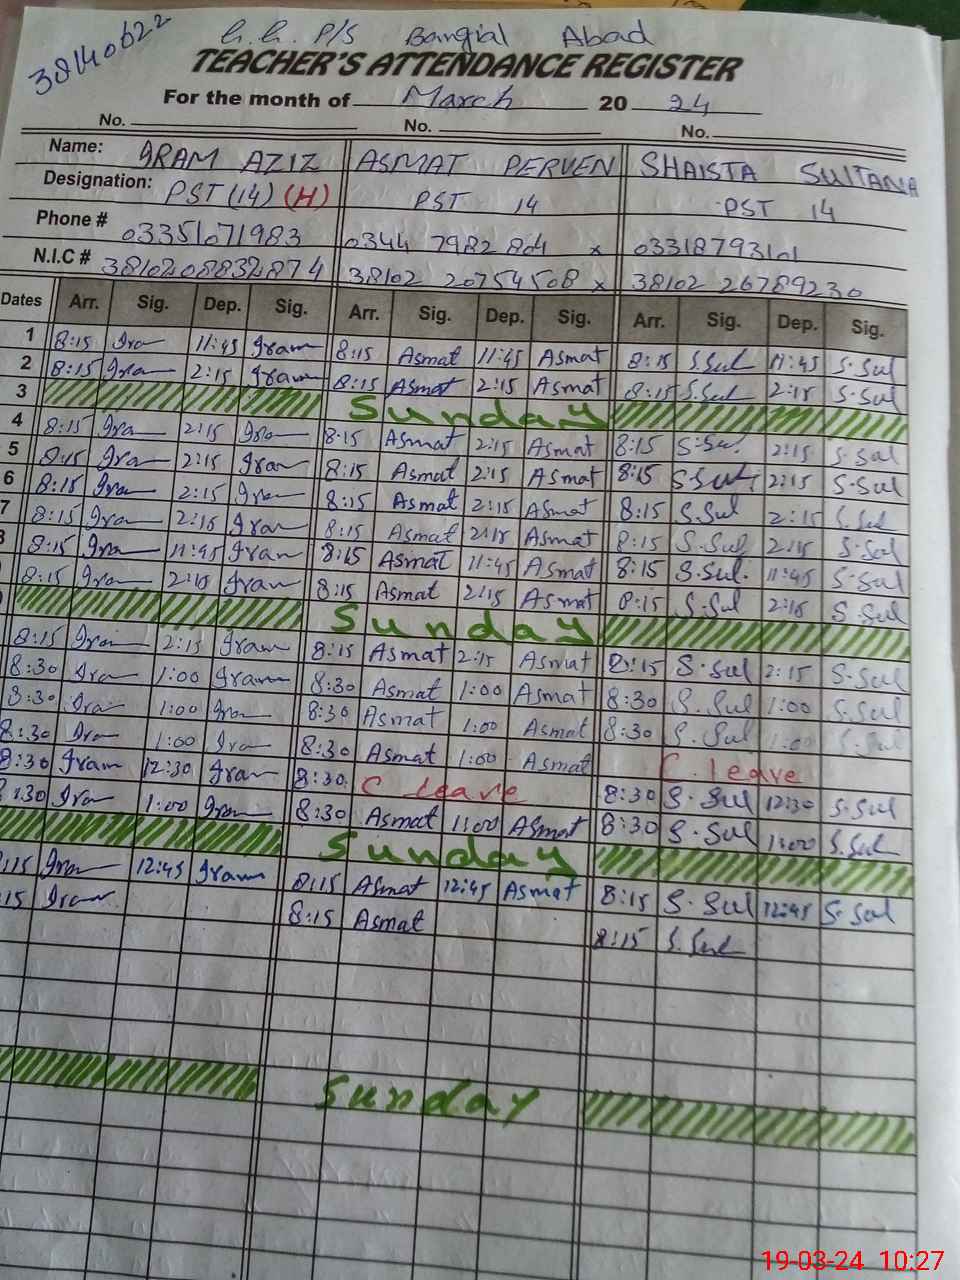 38140622 G.G. P/S Bangial Abad
TEACHER'S ATTENDANCE REGISTER
For the month of March 20 24
No. No. No.
Name: IRAM AZIZ ASMAT PERVEN SHAISTA SULTANA
Designation: PST (14) (H) PST 14 PST 14
Phone # 03351071983 0344 7982 804 x 03318793101
N.I.C # 3810208832874 38102 20754508 x 38102 26789230
Dates Arr. Sig. Dep. Sig. Arr. Sig. Dep. Sig. Arr. Sig. Dep. Sig.
1 8:15 Iram 11:45 Iram 8:15 Asmat 11:45 Asmat 8:15 S.Sul 11:45 S.Sul
2 8:15 Iram 2:15 Iram 8:15 Asmat 2:15 Asmat 8:15 S.Sul 2:15 S.Sul
3 Sunday
4 8:15 Iram 2:15 Iram 8:15 Asmat 2:15 Asmat 8:15 S.Sul 2:15 S.Sul
5 8:15 Iram 2:15 Iram 8:15 Asmat 2:15 Asmat 8:15 S.Sul 2:15 S.Sul
6 8:15 Iram 2:15 Iram 8:15 Asmat 2:15 Asmat 8:15 S.Sul 2:15 S.Sul
7 8:15 Iram 2:15 Iram 8:15 Asmat 2:15 Asmat 8:15 S.Sul 2:15 S.Sul
8:15 Iram 11:45 Iram 8:15 Asmat 11:45 Asmat 8:15 S.Sul. 11:45 S.Sul
8:15 Iram 2:15 Iram 8:15 Asmat 2:15 Asmat 8:15 S.Sul 2:15 S.Sul
Sunday
8:15 Iram 2:15 Iram 8:15 Asmat 2:15 Asmat 8:15 S.Sul 2:15 S.Sul
8:30 Iram 1:00 Iram 8:30 Asmat 1:00 Asmat 8:30 S.Sul 1:00 S.Sul
8:30 Iram 1:00 Iram 8:30 Asmat 1:00 Asmat 8:30 S.Sul 1:00 S.Sul
8:30 Iram 1:00 Iram 8:30 Asmat 1:00 Asmat C. leave
8:30 Iram 12:30 Iram 8:30 C leave 8:30 S.Sul 12:30 S.Sul
8:30 Iram 1:00 Iram 8:30 Asmat 1:00 Asmat 8:30 S.Sul 1:00 S.Sul
Sunday
:15 Iram 12:45 Iram 8:15 Asmat 12:45 Asmat 8:15 S.Sul 12:45 S.Sul
:15 Iram 8:15 Asmat 8:15 S.Sul
Sunday
19-03-24 10:27